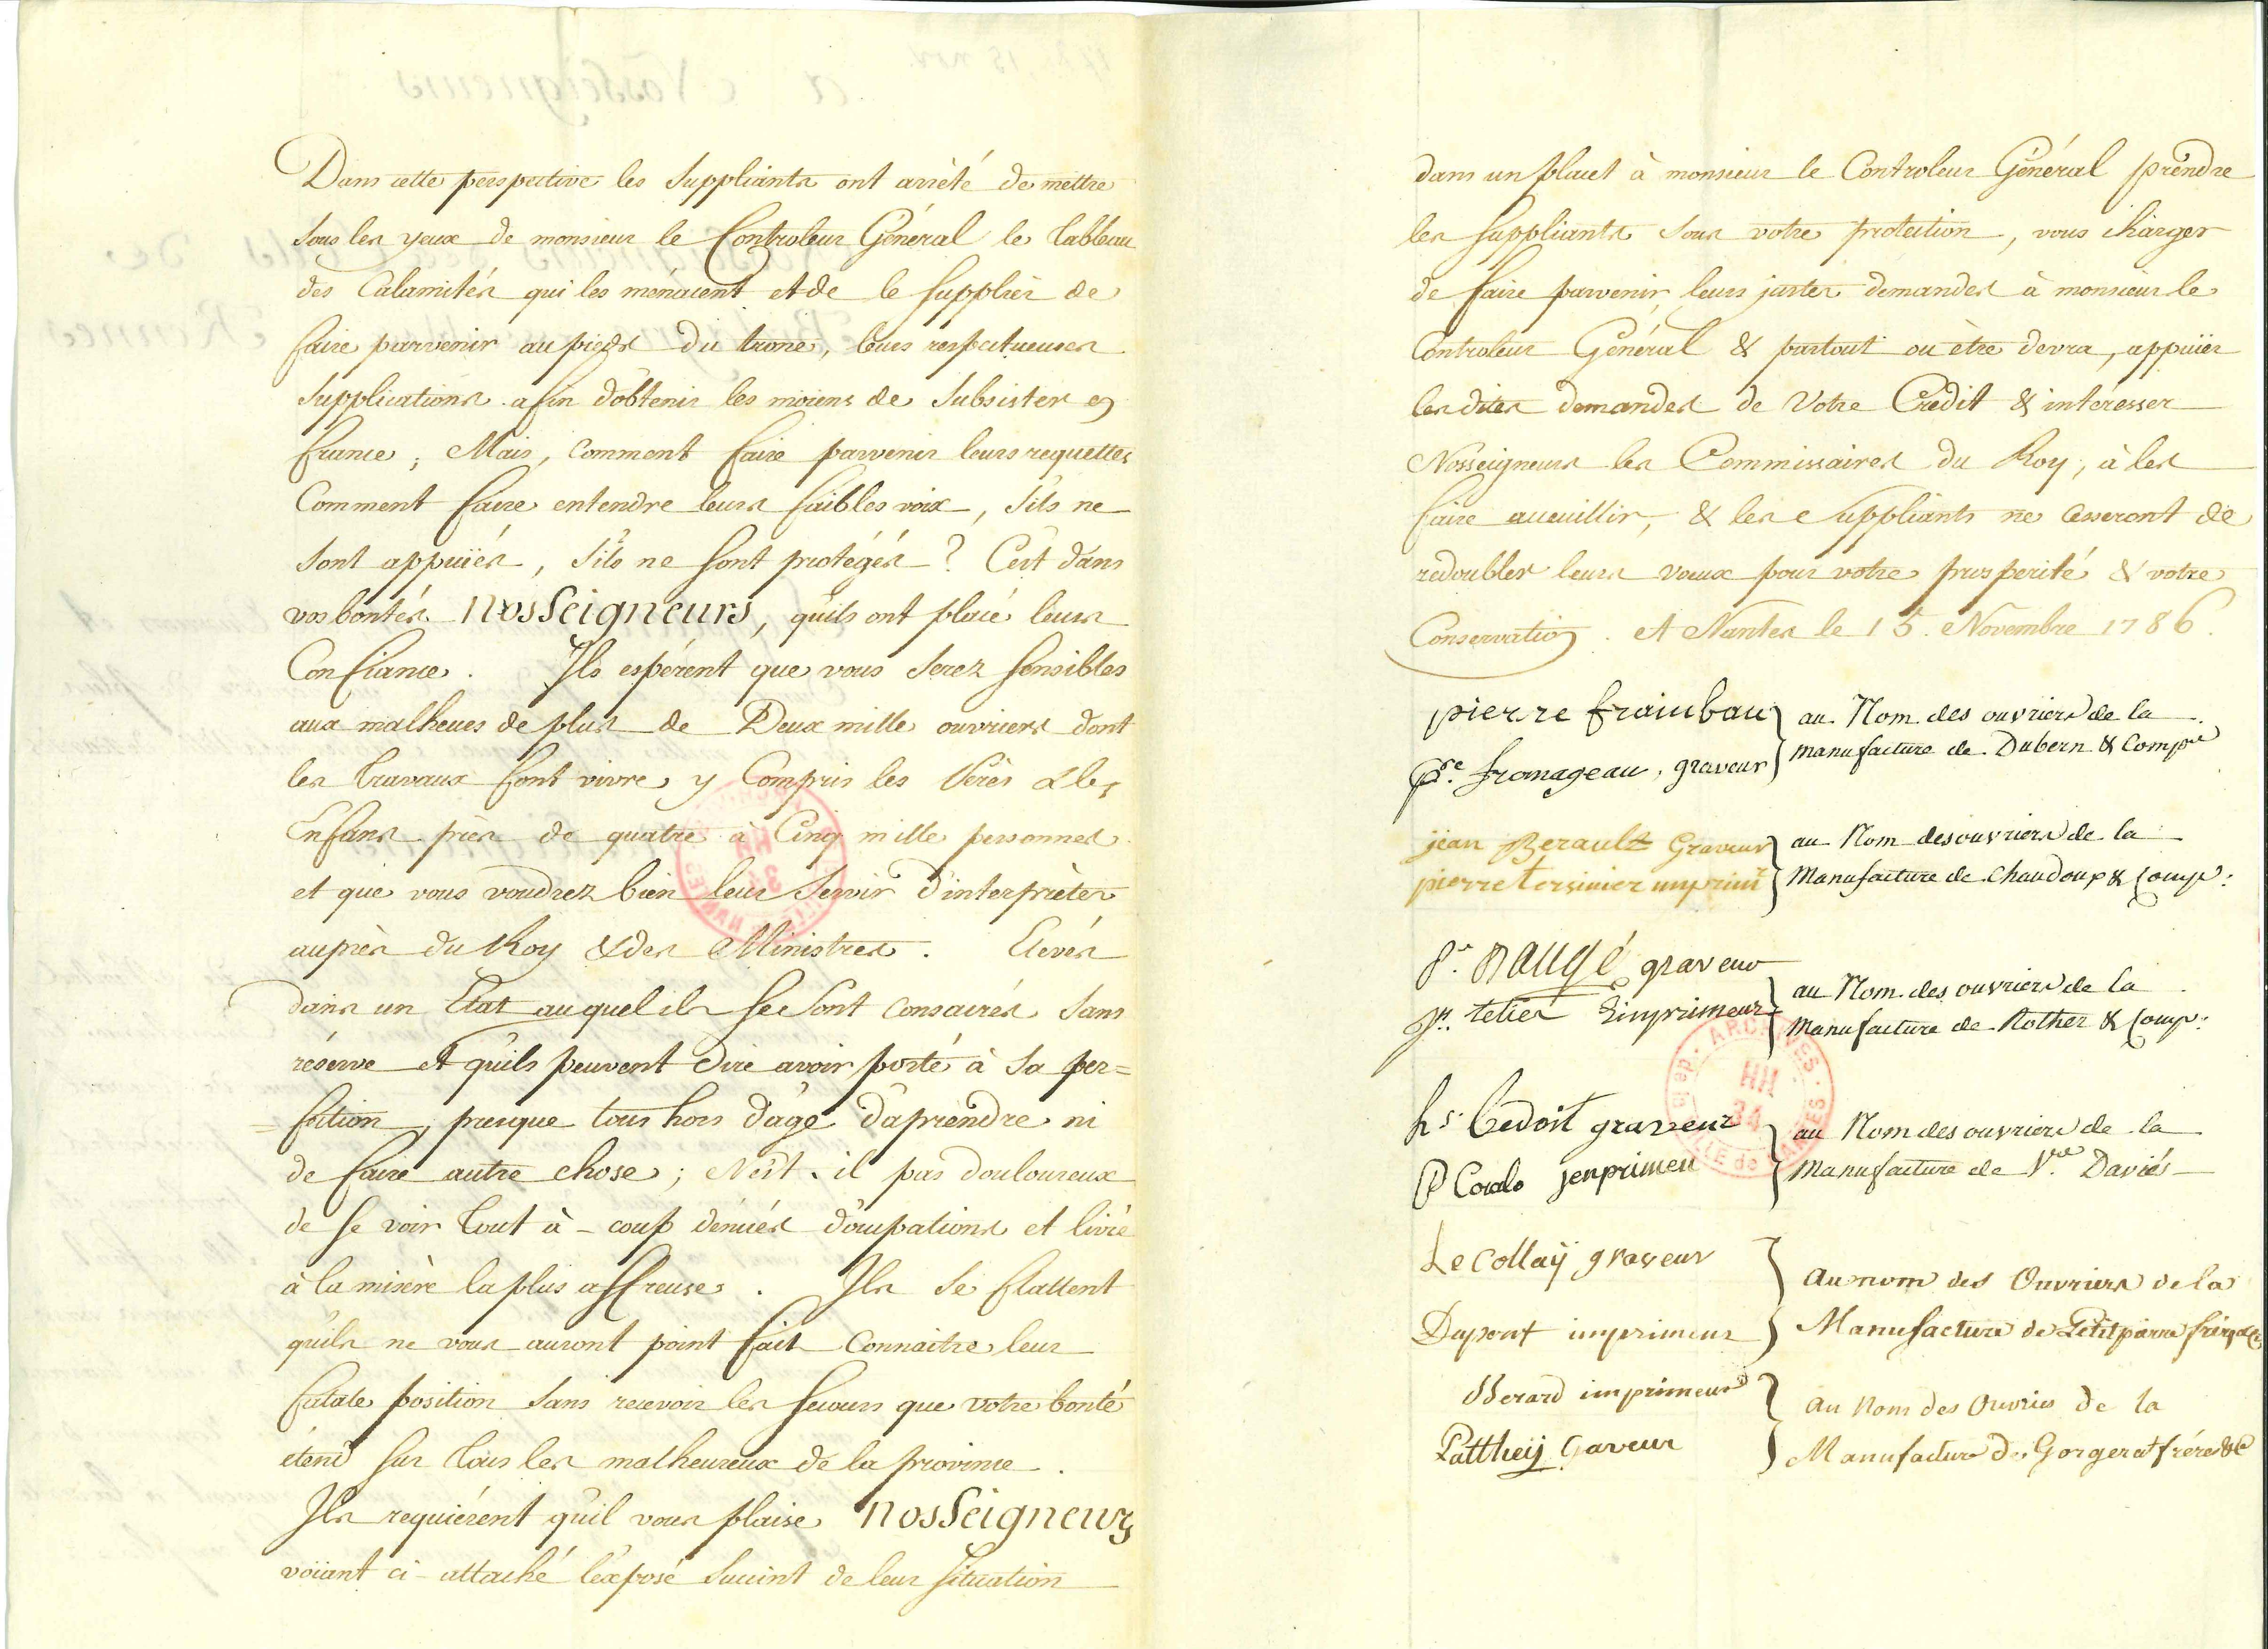 Dans cette perspective les Suppliants ont arrèté de mettre
sous les yeux de monsieur le Controleur Général le tableau
des Calamités qui les ménacent et de le supplier de
faire parvenir au pieds du trone, leurs respectueuses
supplications afin d'obtenir les moiens de Subsister en
france ; Mais, comment faire parvenir leurs requettes
Comment faire entendre leurs faibles voix, s'ils ne
sont appuiés, s'ils ne sont protégés ? C'est dans
vos bontés nosseigneurs, qu'ils ont placé leurs
Confiance. Ils espérent que vous serez sensibles
aux malheurs de plus de Deux mille ouvriers dont
les travaux font vivre, y Compris les Pères & les
Enfans près de quatre à Cinq mille personnes
et que vous voudrez bien leur servir d'interprèter
auprès du Roy & des Ministres. Elevés
dans un Etat auquel ils se sont consacrés sans
réserve et qu'ils peuvent dire avoir porté à sa per=
=fection, presque tous hors d'age d'aprendre ni
de faire autre chose ; N'est-il pas douloureux
de se voir tout à-coup denués d'ocupations et livré
à la misère la plus affreuse. Ils se flattent
qu'ils ne vous auront point fait connaitre leur
fatale position sans recevoir les secours que votre bonté
étend sur tous les malheureux de la province.
Ils requiérent qu'il vous plaise nosseigneurs
voiant ci-attaché l'exposé succint de leur situation
dans un placet à monsieur le Controleur Général prendre
les suppliants sous votre protection, vous charger
de faire parvenir leurs justes demandes à monsieur le
Controleur Général & partout ou ètre devra, appuier
les dites demandes de Votre Crédit & intéresser
Nosseigneurs les Commissaires du Roy, à les
faire acceuillir, & les Suppliants ne cesseront de
redoubler leurs voeux pour votre prosperité & votre
Conservation. A Nantes le 15. Novembre 1786.
pierre fraimbau au Nom des ouvriers de la
manufacture de Dubern & Compie
fromageau, graveur
jean Berault Graveur au Nom des ouvriers de la
pierre tersinier imprim Manufacture de Chaudoux & Comp:
Baugé graveur
au Nom des ouvriers de la
telier Limprimeur Manufacture de Rother & Comp:
hs. bedoit graveur au Nom des ouvriers de la
P Coralo jenprimeu Manufacture de Vve Daviés
Le Collaÿ graveur
au nom des Ouvriers de la
Dupont imprimeur Manufacture de Petitpierre frères & C
Berard imprimeur au Nom des Ouvries de la
Patthey Gaveur Manufacture de Gorgerat frères & C
ARCHIVES
HH
VILLE de NANTES